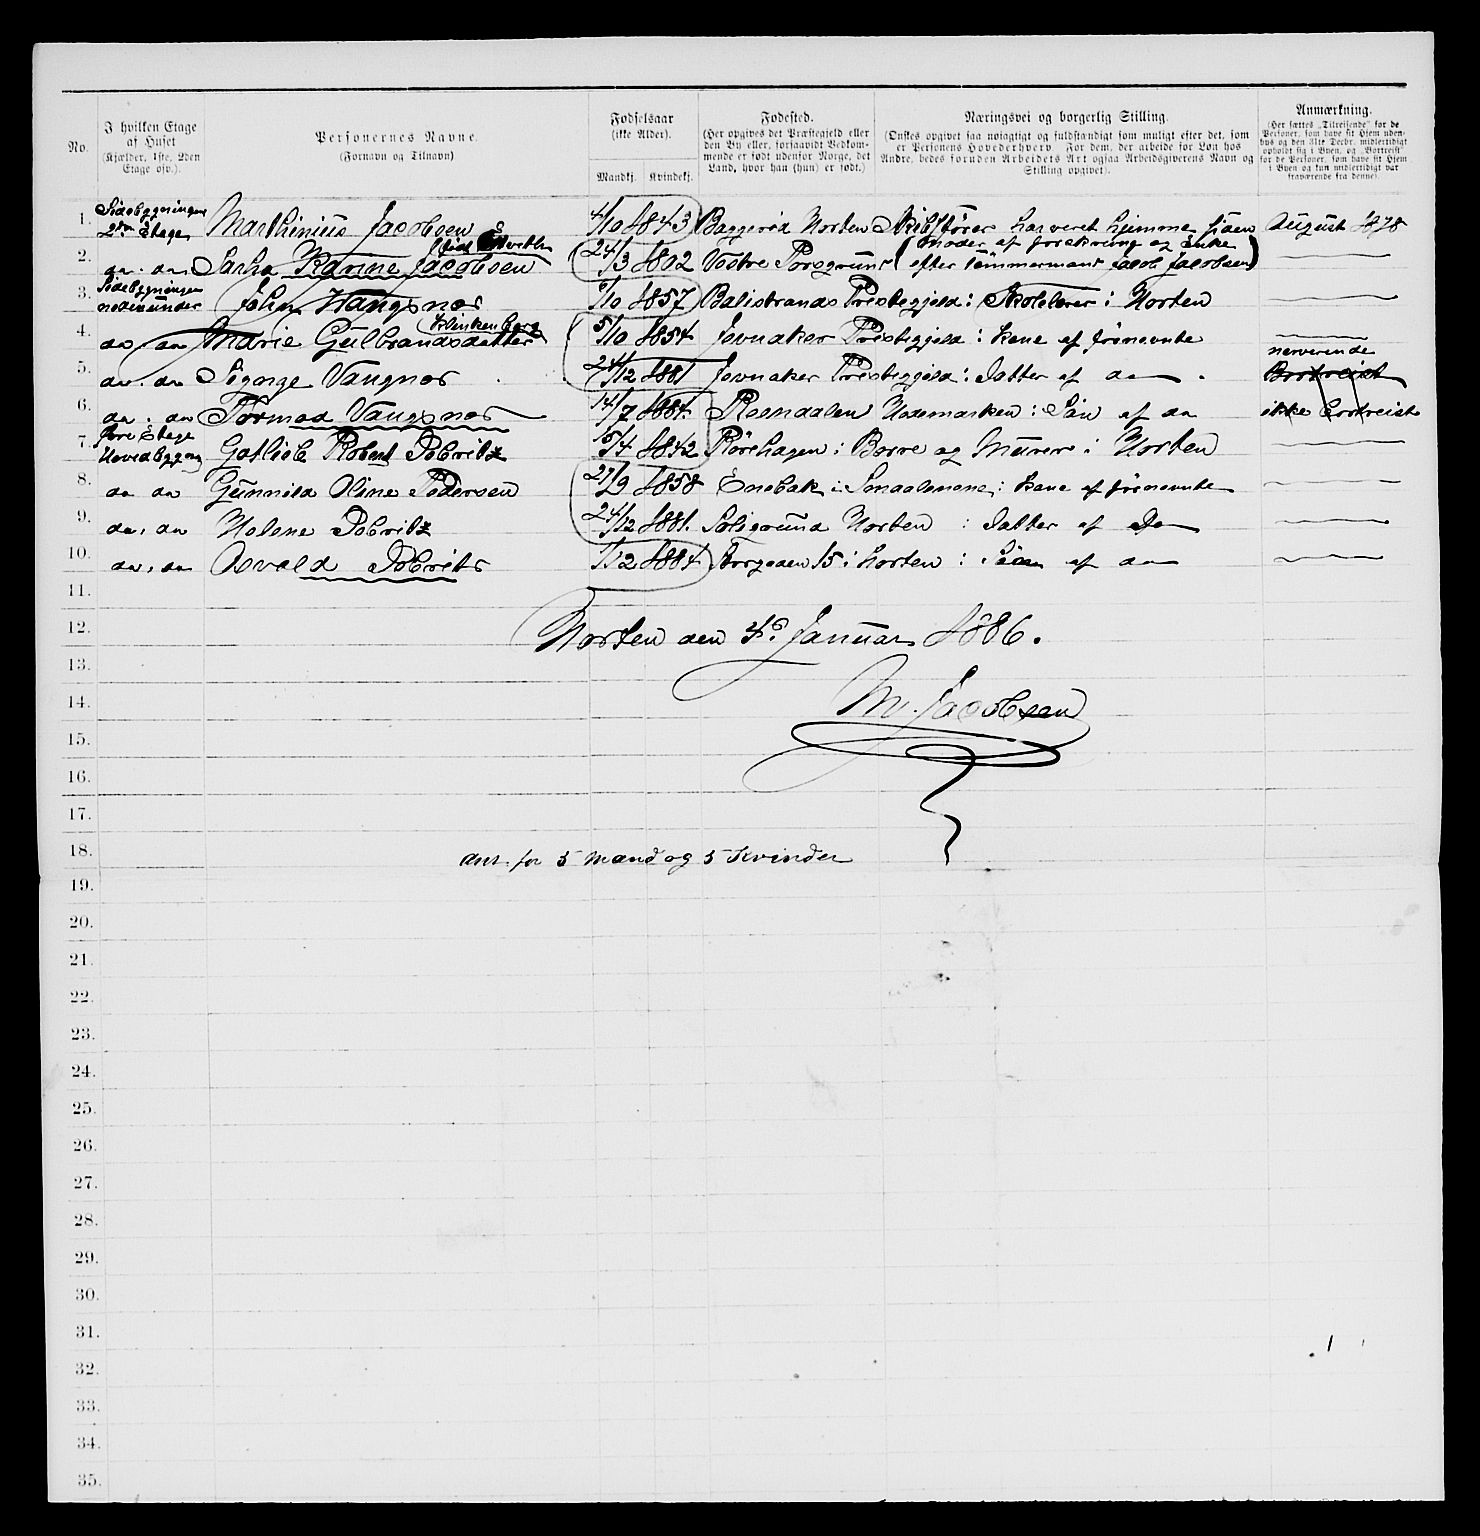 No.
I hvilken Etage af Huset (Kjælder, 1ste, 2den Etage osv.).
Personernes Navne. (Fornavn og Tilnavn)
Fødselsaar (ikke Alder).
Mandkj. Kvindekj.
Fødested. (Her opgives det Præstegjeld eller den By eller, forsaavidt Vedkommende er født udenfor Norge, det Land, hvor han (hun) er født.)
Næringsvei og borgerlig Stilling. (Ønskes opgivet saa nøiagtigt og fuldstændigt som muligt efter det, som er Personens Hovederhverv. For dem, der arbeide for Løn hos Andre, bedes foruden Arbeidets Art ogsaa Arbeidsgiverens Navn og Stilling opgivet).
Anmærkning. (Her sættes „Tilreisende" for de Personer, som have sit Hjem udenbys og den 31te Decbr. midlertidigt opholdt sig i Byen, og „Bortreist" for de Personer, som have sit Hjem i Byen og kun midlertidigt var fraværende fra denne).
1. Sidebygningen 2den Etage Marthinius Jacobsen 4/10 1843 Baggerød Horten Skibsfører har været hjemme siden August 1878
2. do. do. Karine Jacobsen (født 24/3 1802 Vestre Porsgrund (Moder af forskrevne og Enke efter tømmermand Jacob Jacobsen)
3. Sidebygningen nedenunder John Vangsnes 9/10 1857 Balestrands Prestegjeld: Skolelærer i Horten
4. do do Marie Gulbrandsdatter (Klinkenberg 5/10 1854 Jevnaker Prestegjeld: kone af førnevnte
5. do. do Signe Vangnes 24/12 1881 Jevnaker Prestegjeld: Datter af do. nerverende Bortreist
6. do. do Tormod Vangsnes 14/7 1884. Romedalen Hedemarken: Søn af do ikke bortreist
7. føre Etage Hovedbygning Gotlieb Robert Dobritz 15/4 1842 Rørehagen i Borre og Murer i Horten
8. do do Gunnild Oline Pedersen 27/9 1858 Enebak i Smaalenene: kone af førnevnte
9. do. do Helene Dobritz 24/12 1881. Horten : Datter af Do
10. do. do Osvald Dobritz 1/12 1884 Storgaden 15 i Horten : Søn af do
11.
12. Horten den 4de Januar 1886.
13.
14. M. Jacobsen
15.
16.
17.
18. Ant. for 5 Mænd og 5 Kvinder
19.
20.
21.
22.
23.
24.
25.
26.
27.
28.
29.
30.
31.
32.
33.
34.
35.